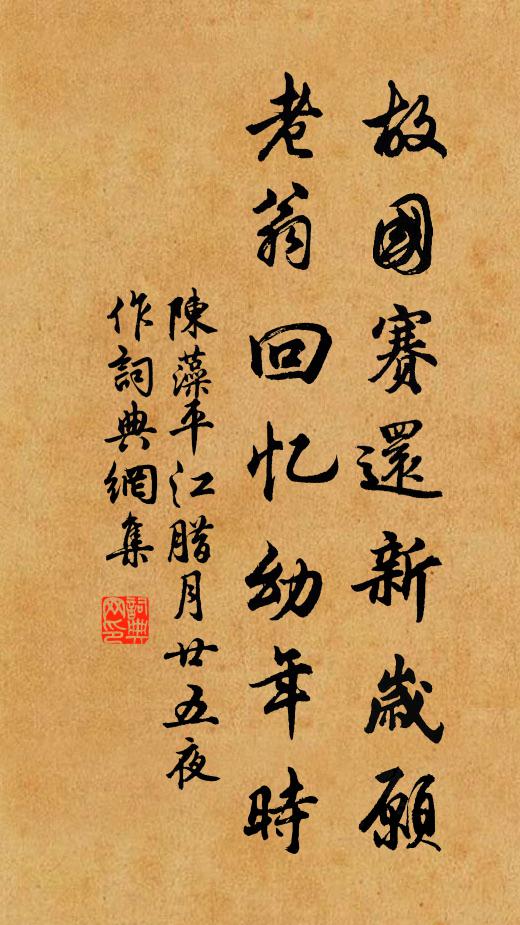 故國賽還新歲願
老翁回忆幼年時
陳藻平江腊月廿五夜
作詞典網集
詞典網印